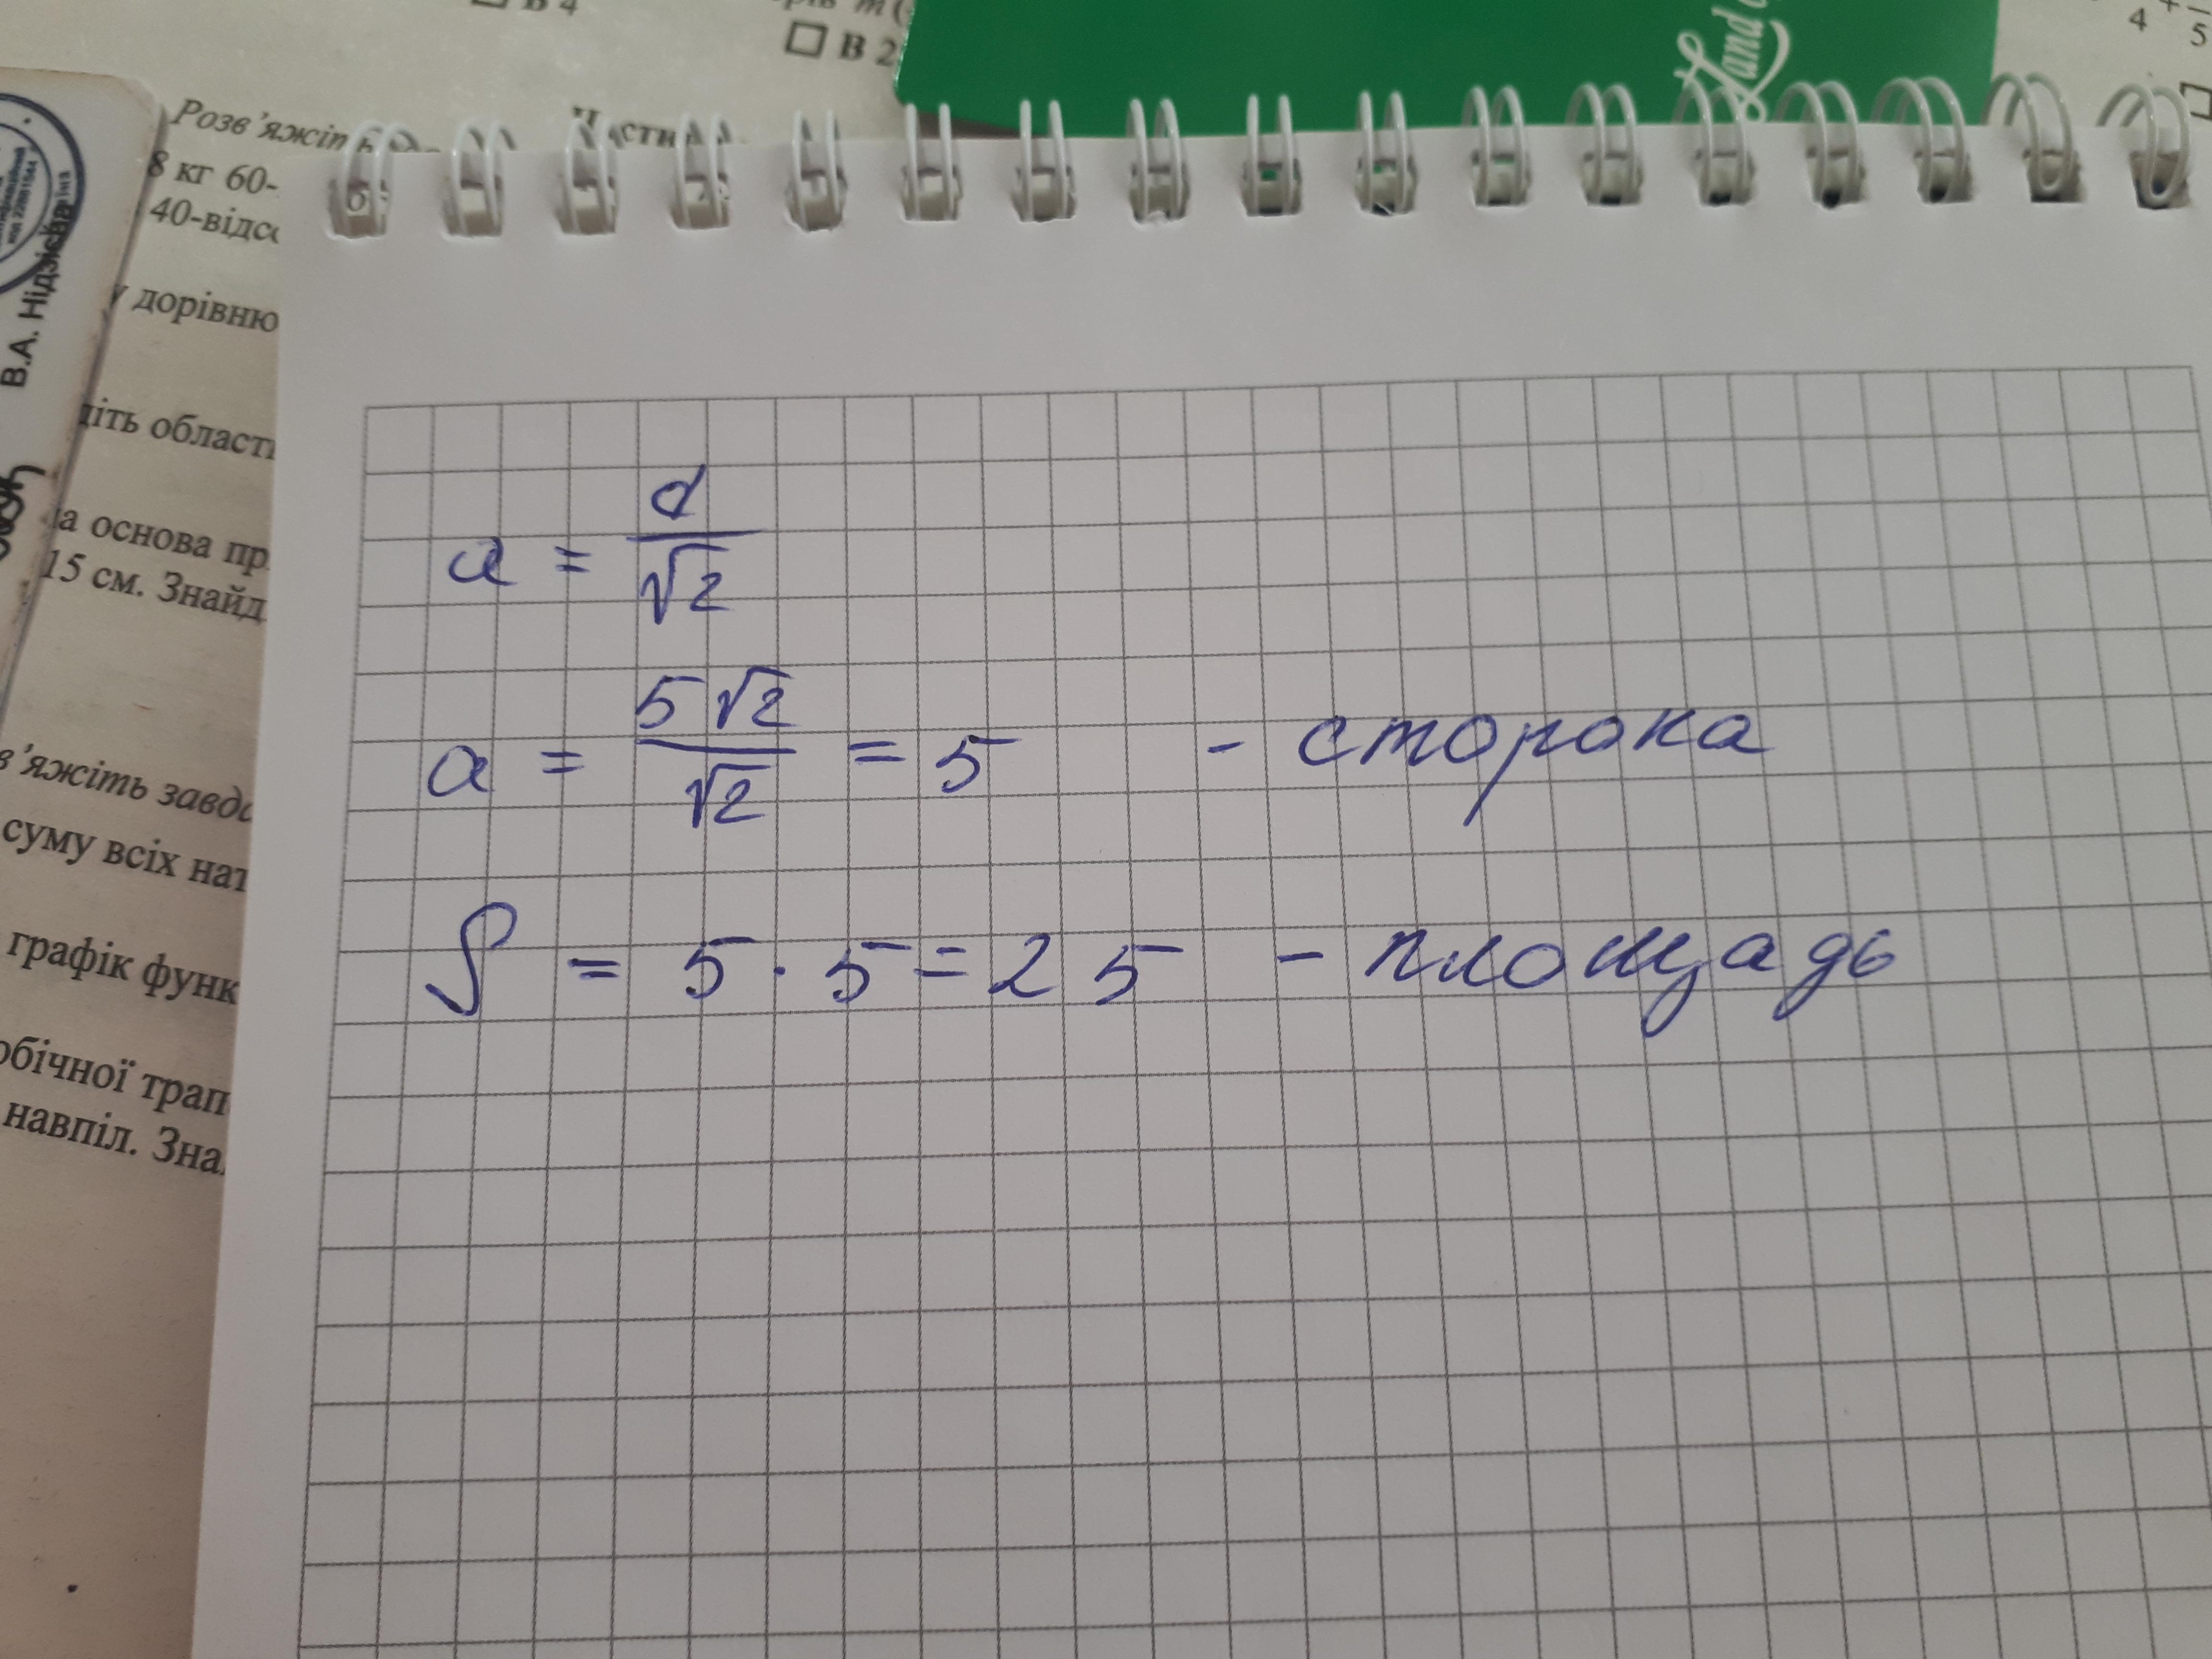 В 4
В 2
Land
4
5
Розв'яжіть
8 кг 60-
40-відсо
дорівню
діть област
а основа пр
15 см. Знайд
в'яжіть завд
суму всіх нат
графік функ
обічної трап
навпіл. Зна
В.А. Нідзієва
a = d/√2
a = 5√2/√2 = 5 - сторона
S = 5 · 5 = 25 - площадь